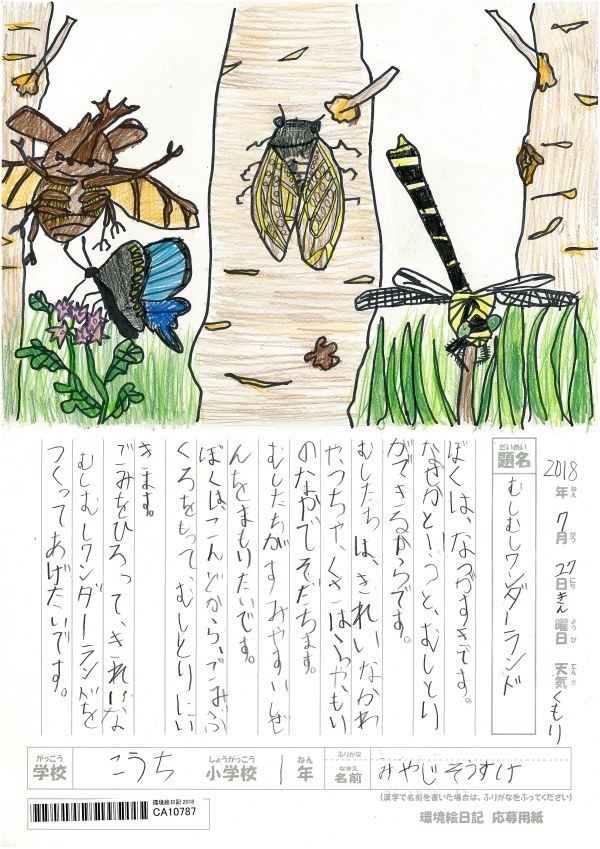 2018年7月27日きん曜日 天気くもり
ねん がつ にち ようび てんき
だいめい
題名
むしむしワンダーランド
ぼくは、なつがすきです。
なぜかというと、むしとり
ができるからです。
むしたちは、きれいなかわ
や、つちや、くさはらや、もり
のなかでそだちます。
むしたちがすみやすいしぜ
んをまもりたいです。
ぼくは、こんどから、ごみぶ
くろをもって、むしとりにい
きます。
ごみをひろって、きれいな
むしむしワンダーランドを
つくってあげたいです。
がっこう しょうがっこう ねん ふりがな
なまえ
学校 こうち 小学校 1年 名前 みやじそうすけ
(漢字で名前を書いた場合は、ふりがなをふってください)
環境絵日記 2018
CA10787
環境絵日記 応募用紙